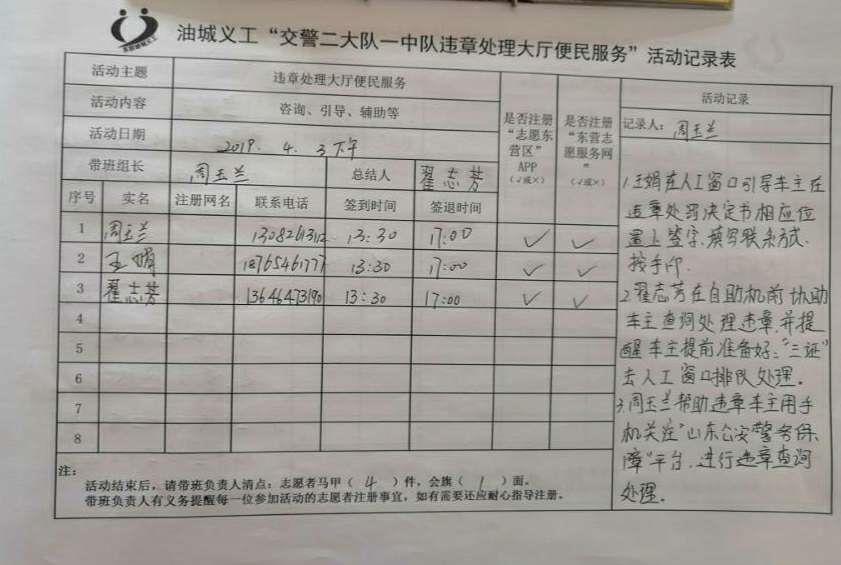 油城义工“交警二大队一中队违章处理大厅便民服务”活动记录表
活动主题 违章处理大厅便民服务
活动内容 咨询、引导、辅助等
活动日期 2019. 4. 3下午
带班组长 周玉兰 总结人 翟志芳
是否注册“志愿东营区”APP（√或×）
是否注册“东营志愿服务网”（√或×）
序号 实名 注册网名 联系电话 签到时间 签退时间
1 周玉兰 13:30 17:00 ✓ ✓
2 王娟 18765461777 13:30 17:00 ✓ ✓
3 翟志芳 13646473190 13:30 17:00 ✓ ✓
4
5
6
7
8
活动记录
记录人：周玉兰
1.王娟在人工窗口引导车主在
违章处罚决定书相应位
置上签字、填写联系方式、
按手印.
2.翟志芳在自助机前协助
车主查询处理违章,并提
醒车主提前准备好：“三证”
去人工窗口排队处理。
3.周玉兰帮助违章车主用手
机关注“山东公安警务保
障”平台，进行违章查询
处理。
注：
活动结束后，请带班负责人清点：志愿者马甲（ 4 ）件，会旗（ 1 ）面。
带班负责人有义务提醒每一位参加活动的志愿者注册事宜，如有需要还应耐心指导注册。